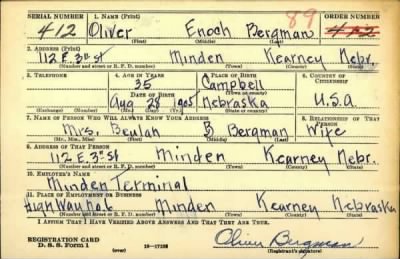 SERIAL NUMBER 1. NAME (Print) ORDER NUMBER
412 Oliver Enoch Bergman 89 412
(First) (Middle) (Last)
2. ADDRESS (Print)
112 E. 3rd St Minden Kearney Nebr.
(Number and street or R. F. D. number) (Town) (County) (State)
3. TELEPHONE 4. AGE IN YEARS 5. PLACE OF BIRTH 6. COUNTRY OF CITIZENSHIP
35 Campbell
DATE OF BIRTH (Town or county)
Aug 28 1905 Nebraska U.S.A.
(Exchange) (Number) (Mo.) (Day) (Yr.) (State or country)
7. NAME OF PERSON WHO WILL ALWAYS KNOW YOUR ADDRESS 8. RELATIONSHIP OF THAT PERSON
Mrs. Beulah B Bergman Wife
(Mr., Mrs., Miss) (First) (Middle) (Last)
9. ADDRESS OF THAT PERSON
112 E. 3rd St Minden Kearney Nebr.
(Number and street or R. F. D. number) (Town) (County) (State)
10. EMPLOYER'S NAME
Minden Terminal
11. PLACE OF EMPLOYMENT OR BUSINESS
Minden Kearney Nebraska
(Number and street or R. F. D. number) (Town) (County) (State)
I AFFIRM THAT I HAVE VERIFIED ABOVE ANSWERS AND THAT THEY ARE TRUE.
REGISTRATION CARD
D. S. S. Form 1 (over) 16—17105 Oliver Bergman
(Registrant's signature)